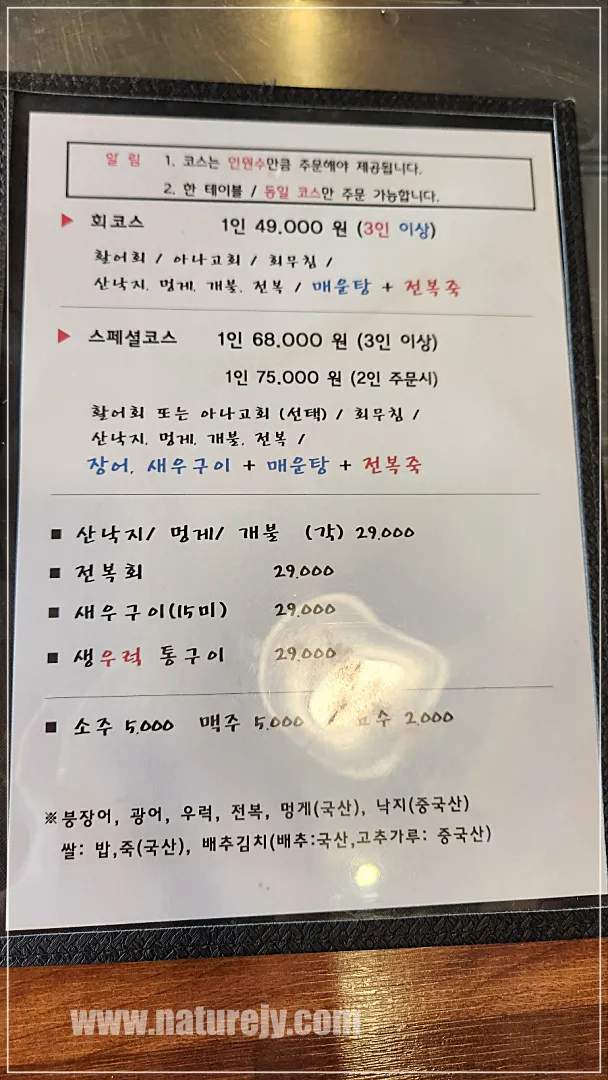 알 림 1. 코스는 인원수만큼 주문해야 제공됩니다.
2. 한 테이블 / 동일 코스만 주문 가능합니다.
▶ 회코스 1인 49.000 원 (3인 이상)
활어회 / 아나고회 / 회무침 /
산낙지. 멍게. 개불. 전복 / 매운탕 + 전복죽
▶ 스페셜코스 1인 68.000 원 (3인 이상)
1인 75.000 원 (2인 주문시)
활어회 또는 아나고회 (선택) / 회무침 /
산낙지. 멍게. 개불. 전복 /
장어, 새우구이 + 매운탕 + 전복죽
■ 산낙지/ 멍게/ 개불 (각) 29.000
■ 전복회 29.000
■ 새우구이(15미) 29.000
■ 생우럭 통구이 29.000
■ 소주 5.000 맥주 5.000 / 2.000
※붕장어, 광어, 우럭, 전복, 멍게(국산), 낙지(중국산)
쌀: 밥,죽(국산), 배추김치(배추:국산,고추가루: 중국산)
www.naturejy.com